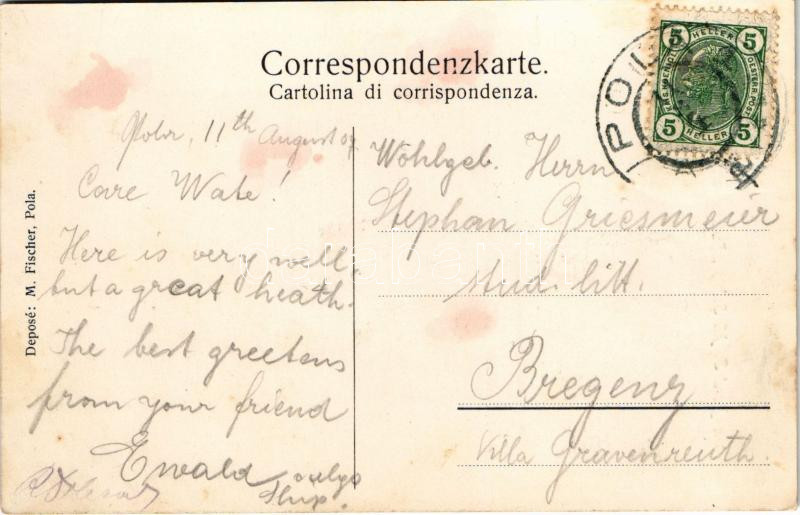 Correspondenzkarte.
Cartolina di corrispondenza.
5 HELLER 5
5 HELLER 5
POLA
Pola, 11th August 07
Care Wate!
Here is very well,
but a great heath.
The best greetens
from your friend
Ewald vulgo
Wohlgeb. Herrn
Stephan Griesmeier
stud. litt.
Bregenz
Villa Gravenreuth.
Deposé: M. Fischer, Pola.